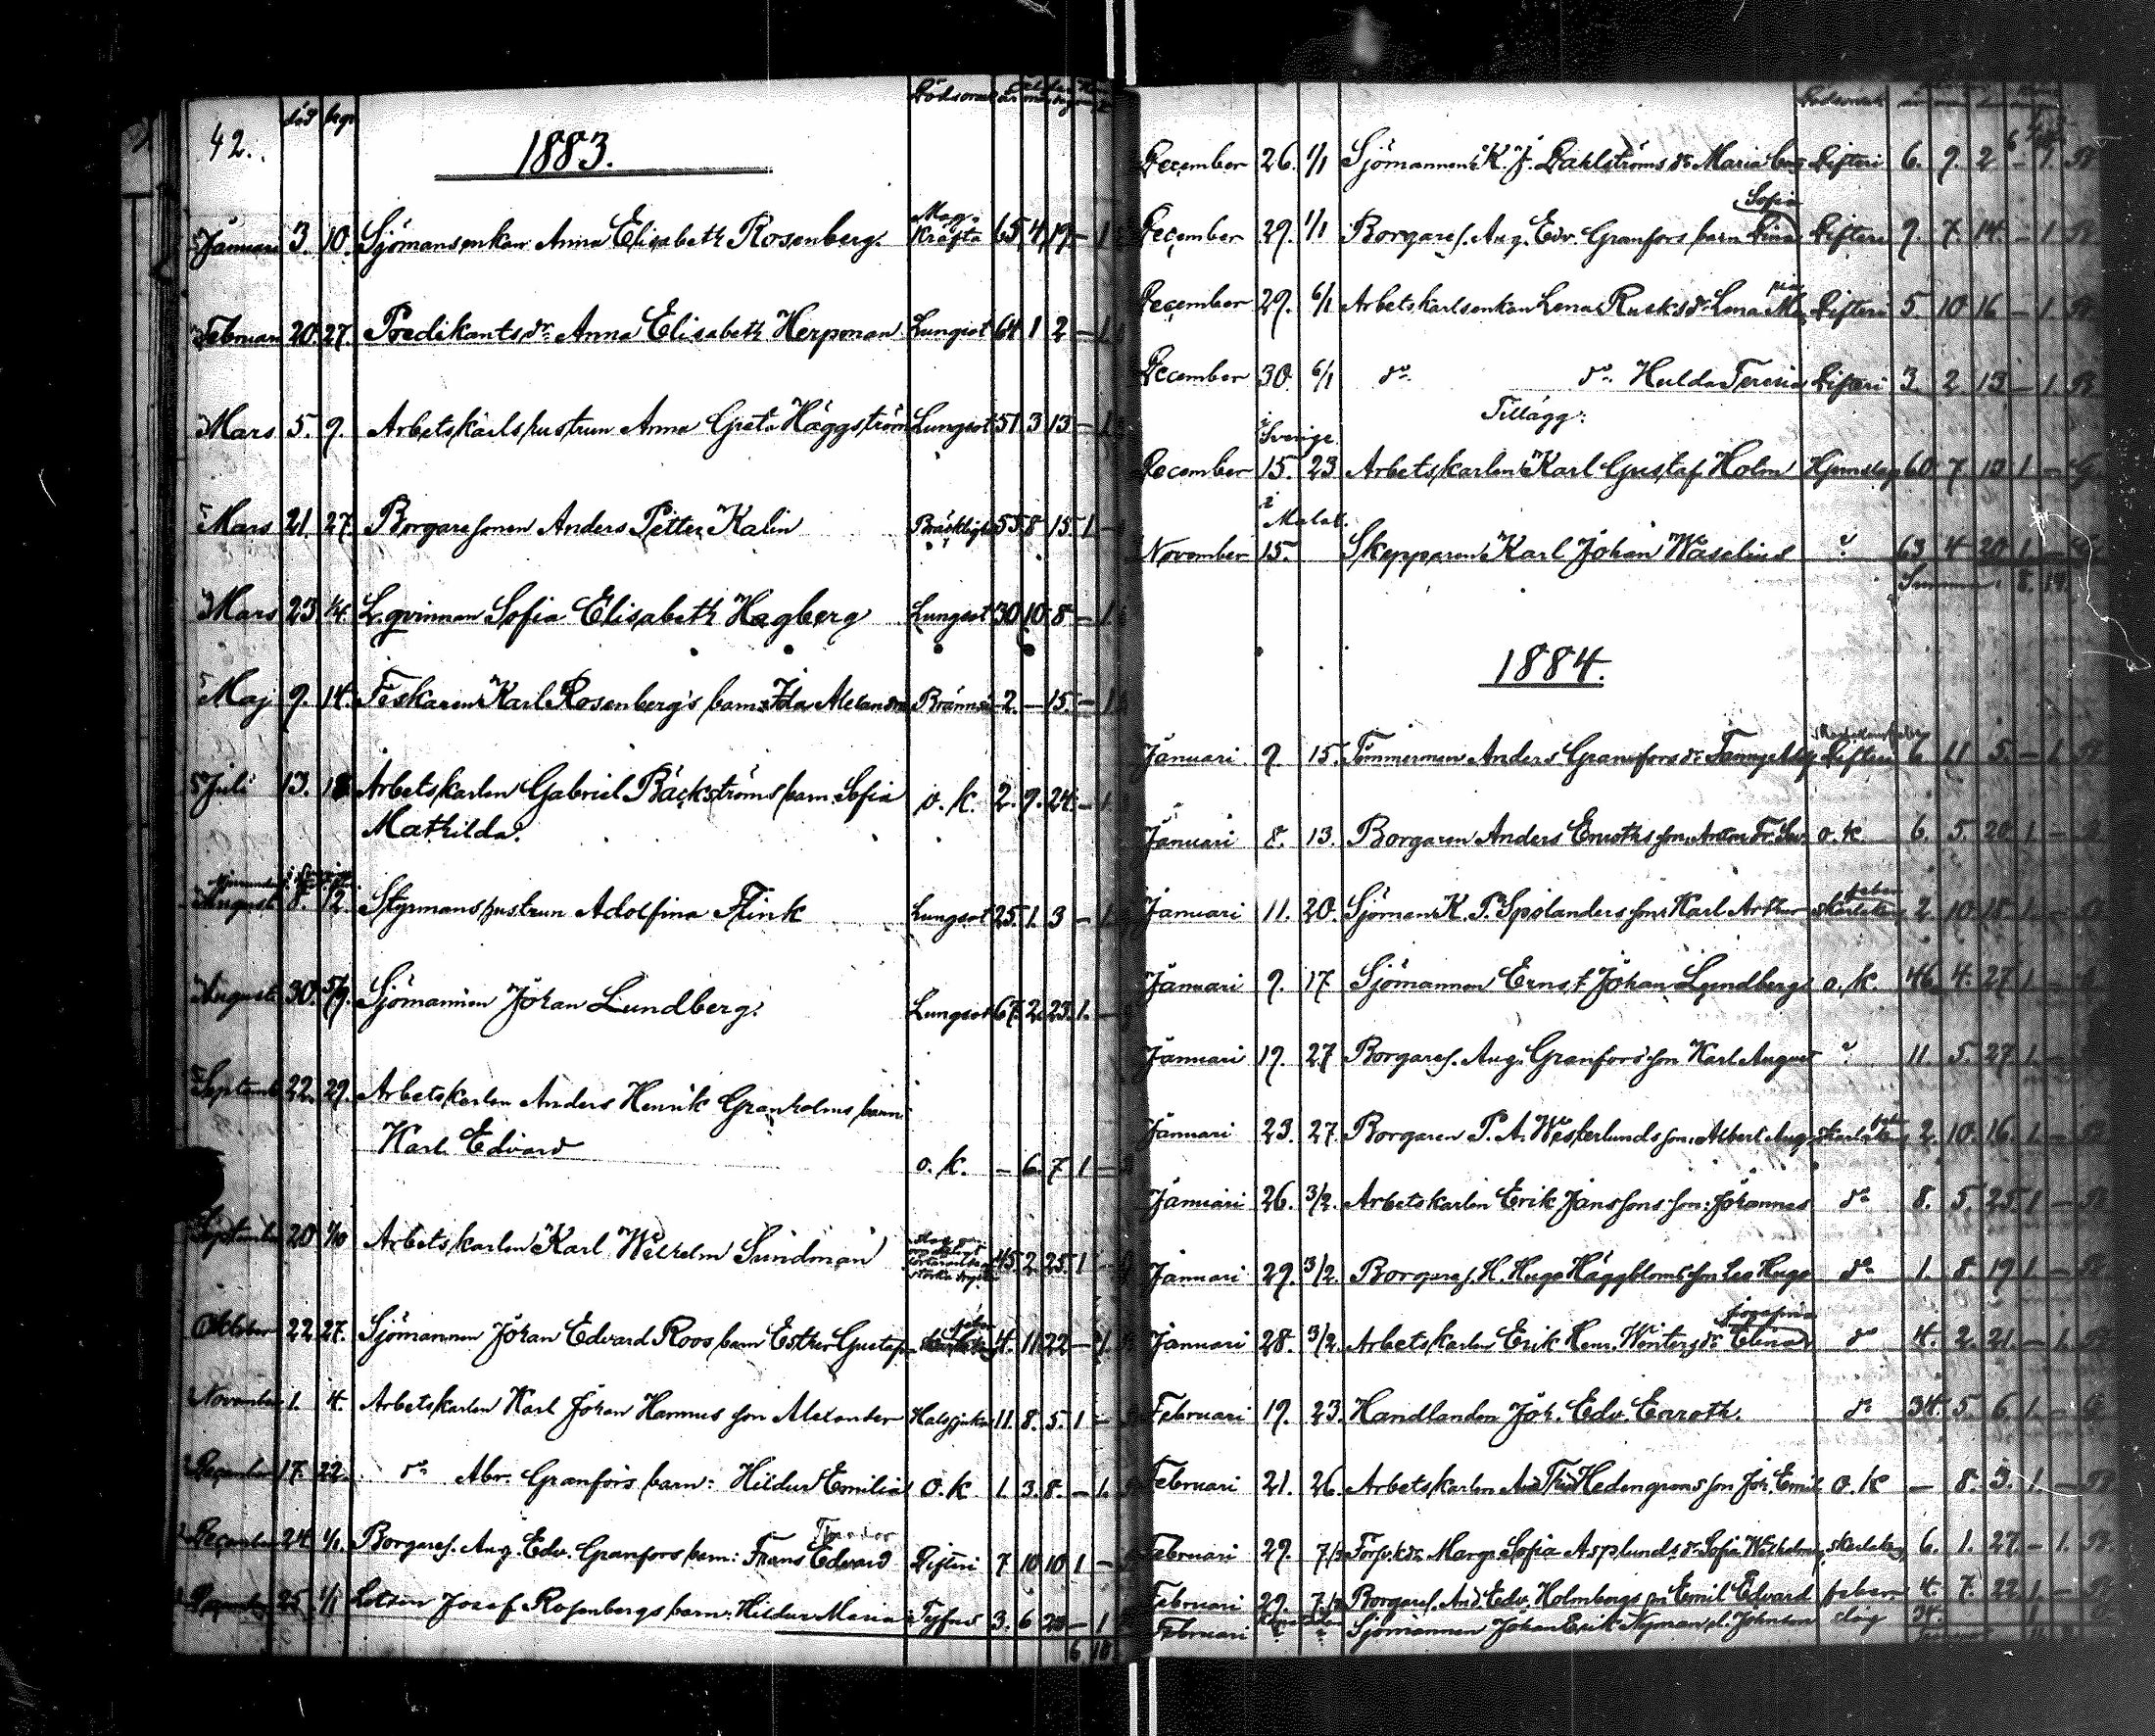 42.
död begr Dödsorsak
1883.
Januari 3. 10. Sjömansenkan Anna Elisabeth Rosenberg. Mag- kräfta 65 4 19 – 1
Februari 20. 27. Predikants dr. Anna Elisabeth Herpman Lungsot 64 1 2 – 1
Mars 5. 9. Arbetskarlshustrun Anna Greta Häggström Lungsot 51 3 13 – 1
Mars 21. 27. Borgaresonen Anders Petter Kalin 55. 8 15. 1 –
Mars 23 1/4. L. qvinnan Sofia Elisabeth Hagberg Lungsot 30 10 8 – 1
Maj 9. 14. Fiskaren Karl Rosenberg's barn: Ida Alexandra 2. – 15. – 1
Juli 13. 18 Arbetskarlen Gabriel Bäckströms barn Sofia o. k. 2. 9. 24. – 1
Mathilda.
August 8. 12. Styrmanshustrun Adolfina Flink Lungsot 25. 1. 3 – 1
Augusti 30. 5/9. Sjömannen Johan Lundberg. Lungsot 67. 2. 23. 1. –
Septemb 22. 29. Arbetskarlen Anders Henrik Granholms barn
Karl Edvard o. k. – 6. 7 1 –
September 20 1/10 Arbetskarlen Karl Wilhelm Sundman 45. 2. 25. 1 –
Oktober 22 27. Sjömannen Johan Edvard Roos barn Esther Gustafva 4. 11. 22 – 1.
November 1. 4. Arbetskarlen Karl Johan Hannus son Alexander Halssjuka 11. 8. 5. 1 –
December 17. 22. do Abr. Granfors barn: Hildur Emilia O. k 1. 3. 8. – 1.
Theodor
December 24. 1/1 Borgares. Aug. Edv. Granfors barn: Frans Edvard Difteri 7 10 10 1 –
December 25. 1/1 Lotsen Josef Rosenbergs barn: Hildur Maria Tyfus 3. 6 – 1
6 10
Dödsorsak
December 26. 1/1 Sjömannen K. J. Dahlströms dr. Maria Difteri 6. 9. 2 – 1.
Sofia
December 29. 1/1 Borgares. Aug. Edv. Granfors barn Lina Difteri 9. 7. 14. – 1
December 29. 6/1 Arbetskarlsenkan Lena Rusks dr Lena Difteri 5. 10 16 – 1.
December 30. 6/1 do. do. Hulda Teresia Difteri 3. 2. 13 – 1.
Tillägg:
i Sverige
December 15. 23 Arbetskarlen Karl Gustaf Holm 60 7 13 1 –
i Malak.
November 15. Skepparen Karl Johan Waselius ? 63 4 20 1 –
Summa 8. 19.
1884.
Januari 9. 15. Timmerman Anders Granfors dr Fanny Difteri 6 11 5. – 1.
Januari 8. 13. Borgaren Anders Enroths son: Anton Fr. o. k. 6. 5. 20. 1 –
Januari 11. 20. Sjöman K. P. Sjölanders son: Karl Arthur feber 2. 10 18
Januari 9. 17 Sjömannen Ernst Johan Lundberg o. k. 46 4. 27 1
Januari 19. 27 Borgares. Aug. Granfors son Karl August ? 11. 5. 27 1.
Januari 23. 27 Borgaren P. A. Westerlunds son: Albert Aug. 2. 10. 16. 1. –
Januari 26. 3/2. Arbetskarlen Erik Janssons son: Johannes do 8. 5. 25 1 –
Januari 29. 3/2. Borgares. H. Hugo Häggbloms son Leo Hugo do 1. 8 19 1. –
Josefina
Januari 28. 3/2. Arbetskarlen Erik Henr. Winters dr Elina do 4. 2. 21. – 1.
Februari 19. 23. Handlanden Joh. Edv. Enroth. do 34. 5. 6. 1. –
Februari 21. 26. Arbetskarlen Hedengrens son Joh. Emil o. k – 8. 3. 1. –
Februari 29. 7/3 Marg. Sofia Asplunds dr Sofia Wilhelmina 6. 1. 27. – 1.
Februari 29. 7/3 Borgares. And. Edv. Holmbergs son Emil Edvard feber 4. 7. 22 1. –
Februari Sjömannen Johan Erik Nyman, d. Johnson 34.